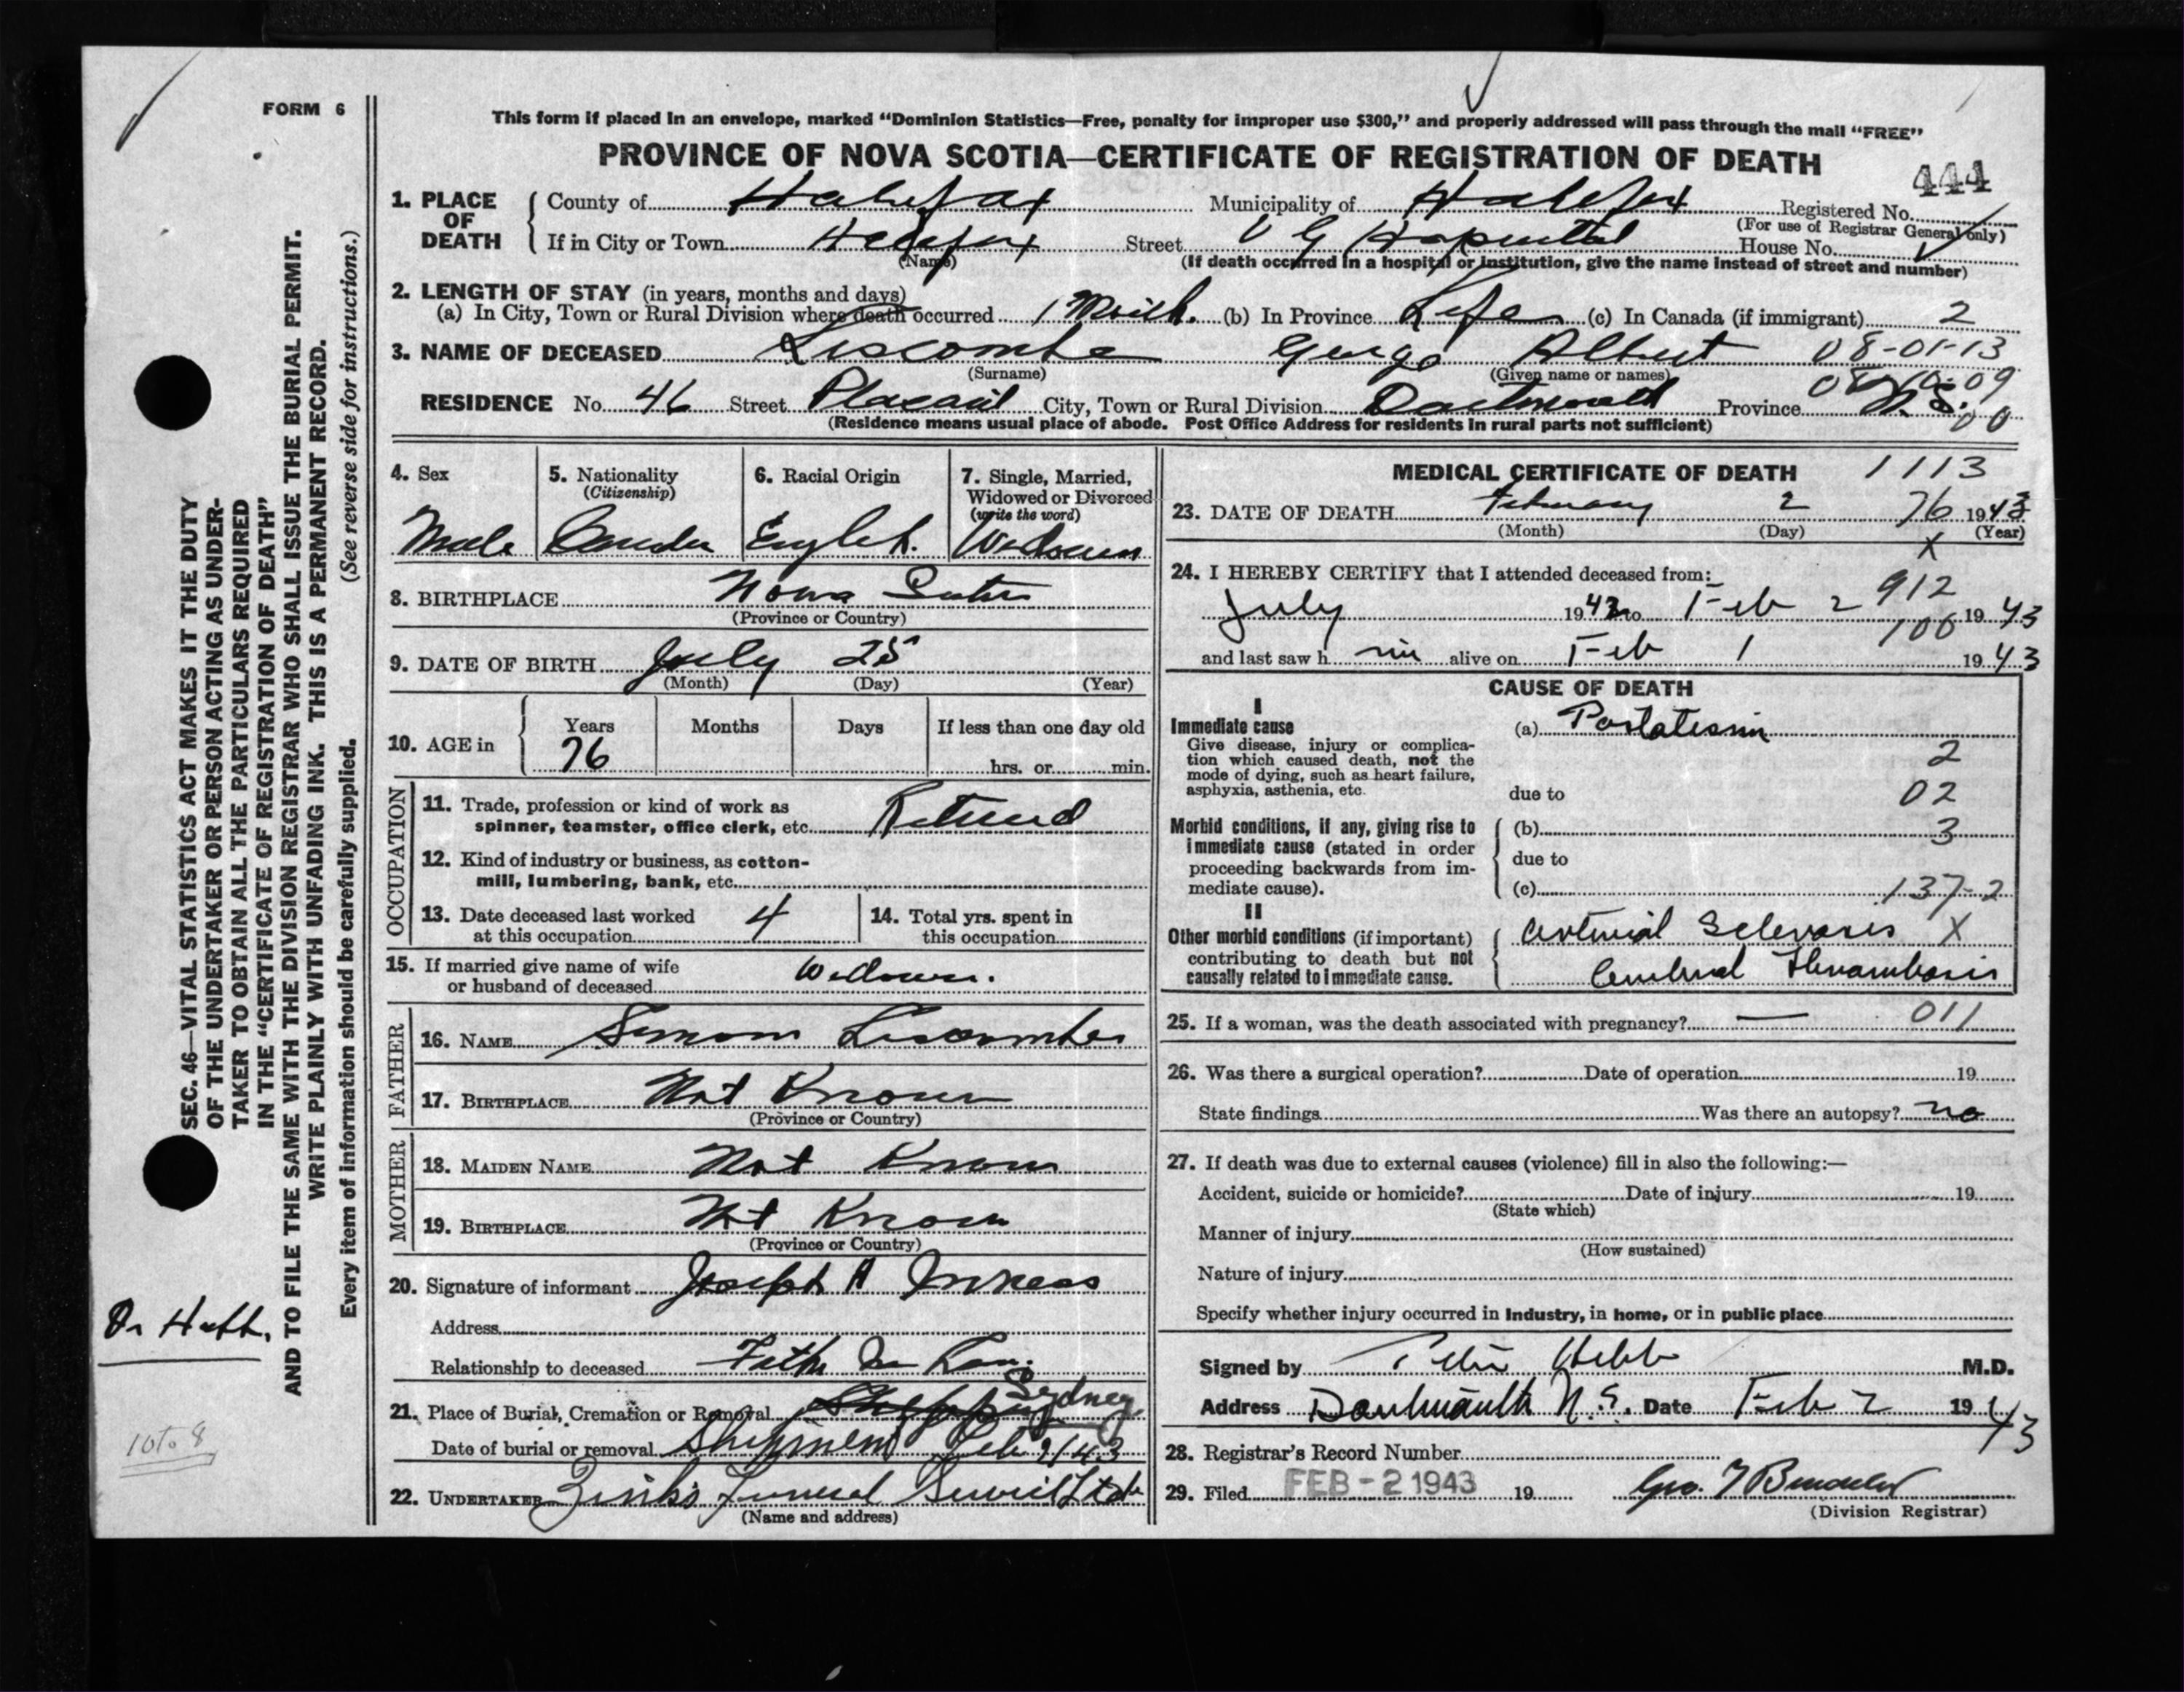 FORM 6
This form if placed in an envelope, marked “Dominion Statistics—Free, penalty for improper use $300,” and properly addressed will pass through the mail “FREE”
PROVINCE OF NOVA SCOTIA—CERTIFICATE OF REGISTRATION OF DEATH
444
1. PLACE OF DEATH
County of Halifax Municipality of Halifax Registered No.
(For use of Registrar General only)
If in City or Town Halifax Street V G Hospital House No.
(Name) (If death occurred in a hospital or institution, give the name instead of street and number)
2. LENGTH OF STAY (in years, months and days)
(a) In City, Town or Rural Division where death occurred 1 Month. (b) In Province Life (c) In Canada (if immigrant) 2
3. NAME OF DECEASED Liscombe George Albert 08-01-13
(Surname) (Given name or names)
RESIDENCE No. 46 Street City, Town or Rural Division Dartmouth Province N. S. 00
(Residence means usual place of abode. Post Office Address for residents in rural parts not sufficient)
4. Sex
Male
5. Nationality
(Citizenship)
6. Racial Origin
English.
7. Single, Married, Widowed or Divorced
(write the word)
Widower
8. BIRTHPLACE Nova Scotia
(Province or Country)
9. DATE OF BIRTH July 25
(Month) (Day) (Year)
10. AGE in
Years Months Days If less than one day old
76 hrs. or min.
OCCUPATION
11. Trade, profession or kind of work as
spinner, teamster, office clerk, etc. Retired
12. Kind of industry or business, as cotton-
mill, lumbering, bank, etc.
13. Date deceased last worked
at this occupation 4
14. Total yrs. spent in
this occupation
15. If married give name of wife
or husband of deceased Widower.
FATHER
16. NAME Simon Liscombe
17. BIRTHPLACE Not Known
(Province or Country)
MOTHER
18. MAIDEN NAME Not Known
19. BIRTHPLACE Not Known
(Province or Country)
20. Signature of informant Joseph A
Address
Relationship to deceased Father In Law.
21. Place of Burial, Cremation or Removal Sydney
Date of burial or removal Shipment Feb 2/43
22. UNDERTAKER Zinks Funeral Service Ltd
(Name and address)
MEDICAL CERTIFICATE OF DEATH 1113
23. DATE OF DEATH February 2 76 1943
(Month) (Day) (Year)
X
24. I HEREBY CERTIFY that I attended deceased from: 912
July 1942 to Feb 2 100 1943
and last saw him alive on Feb 1 1943
CAUSE OF DEATH
I
Immediate cause
Give disease, injury or complica-
tion which caused death, not the
mode of dying, such as heart failure,
asphyxia, asthenia, etc.
(a)
2
due to 02
Morbid conditions, if any, giving rise to
immediate cause (stated in order
proceeding backwards from im-
mediate cause).
(b) 3
due to
(c) 137-2
II
Other morbid conditions (if important)
contributing to death but not
causally related to immediate cause.
arterial Sclerosis X
Cerebral Thrombosis
25. If a woman, was the death associated with pregnancy? — 011
26. Was there a surgical operation? Date of operation 19
State findings Was there an autopsy? no
27. If death was due to external causes (violence) fill in also the following:—
Accident, suicide or homicide? Date of injury 19
(State which)
Manner of injury
(How sustained)
Nature of injury
Specify whether injury occurred in Industry, in home, or in public place
Signed by Hebb M.D.
Address Dartmouth N.S. Date Feb 2 1943
28. Registrar's Record Number
29. Filed FEB - 2 1943 19 Geo.
(Division Registrar)
SEC. 46—VITAL STATISTICS ACT MAKES IT THE DUTY
OF THE UNDERTAKER OR PERSON ACTING AS UNDER-
TAKER TO OBTAIN ALL THE PARTICULARS REQUIRED
IN THE “CERTIFICATE OF REGISTRATION OF DEATH”
AND TO FILE THE SAME WITH THE DIVISION REGISTRAR WHO SHALL ISSUE THE BURIAL PERMIT.
WRITE PLAINLY WITH UNFADING INK. THIS IS A PERMANENT RECORD.
Every item of information should be carefully supplied. (See reverse side for instructions.)